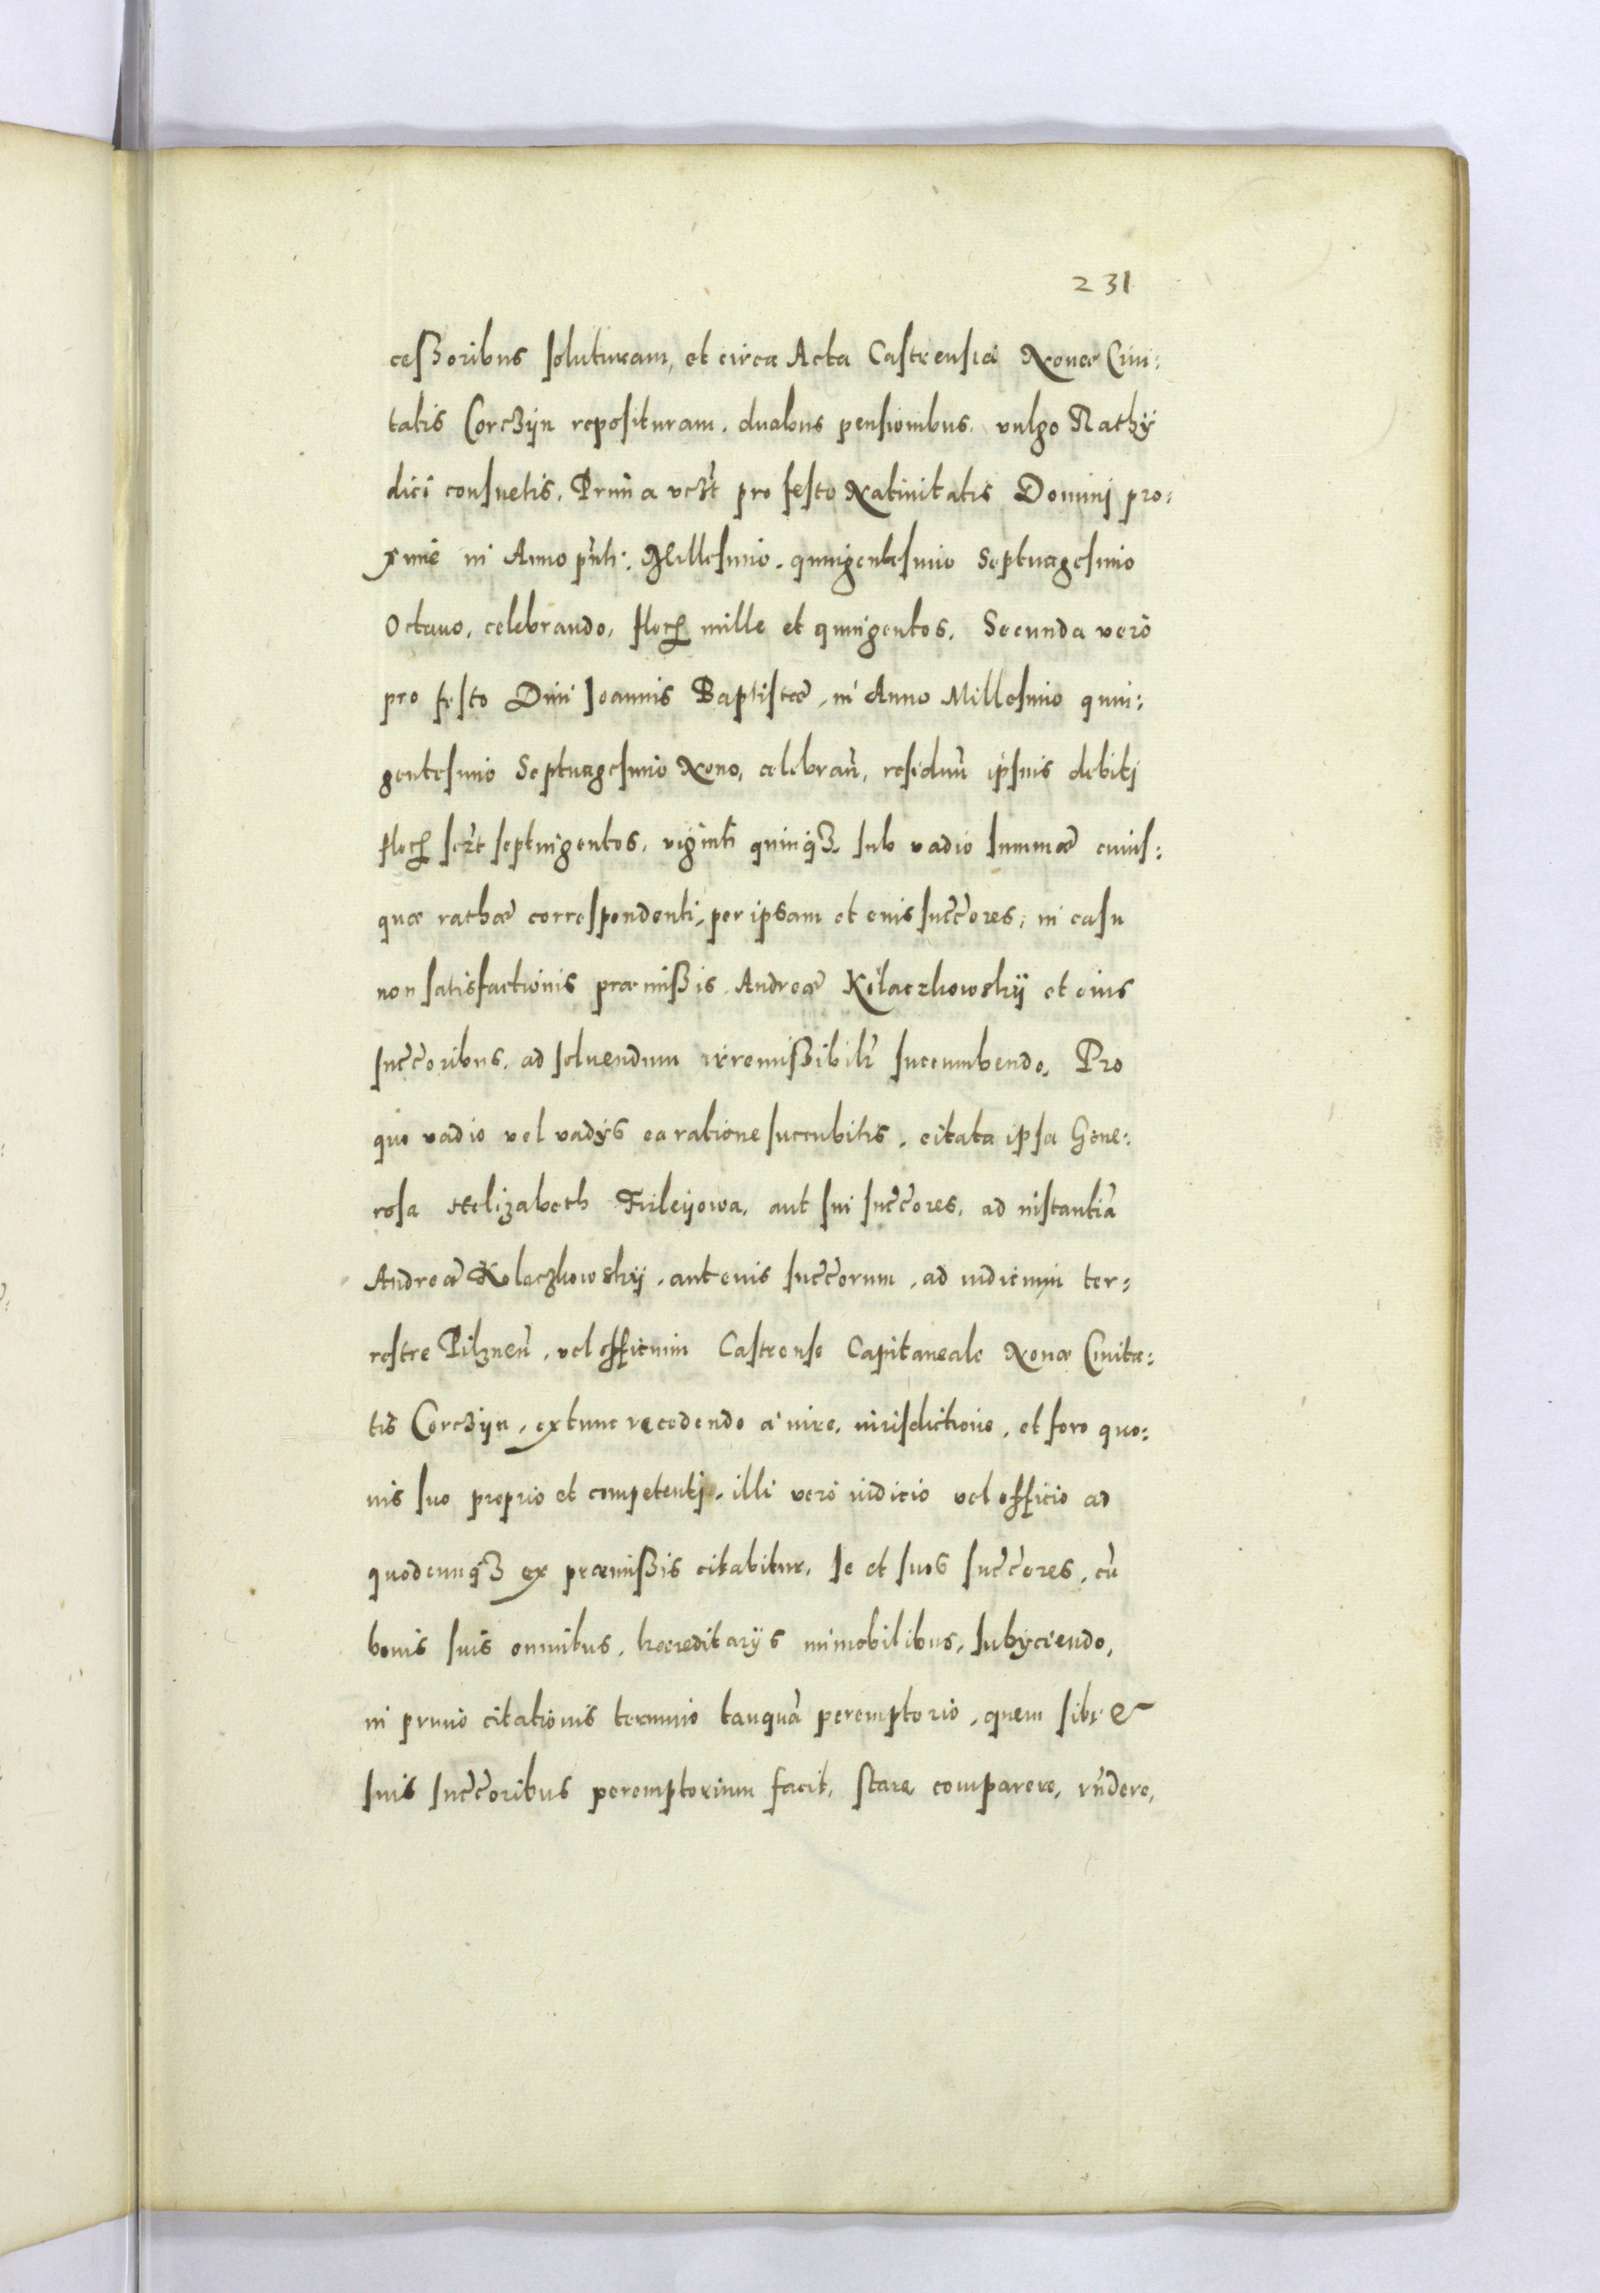 231
ceßoribus soluturam, et circa Acta Castrensia Nouæ Ciui:
tatis Corczyn reposituram, duabus pensionibus, vulgo Rathÿ
dici consuetis, Prima vczt pro festo Natiuitatis Dominj pro:
ximè in Anno pñti: Millesimo, quingentesimo Septuagesimo
Octauo, celebrando, floꝶ mille et quingentos, Secunda verò
pro festo Diui Joannis Baptistæ, in Anno Millesimo quin:
gentesimo Septuagesimo Nono, celebrañ, residuũ ipsius debitj
floꝶ septuigentos, viginti quinqȝ, sub vadio summæ cuius:
quæ rathæ correspondenti, per ipsam et eius succ̃ores, in casu
non satisfactionis præmißis, Andreæ Kołaczkowskÿ et eius
succ̃oribus, ad soluendum irremißibilr̃ succumbendo, Pro
quo vadio vel vadÿs ea ratione succubitis, citata ipsa Gene:
rosa Helizabeth Firleÿowa, aut sui succ̃ores, ad instantiã
Andreæ Kolaczkowskÿ, aut eius succ̃orum, ad iudicium ter:
restre Pilzneñ, vel officium Castrense Capitaneale Nouæ Ciuita:
tis Corczÿn, extunc recedendo à iure, iurisdictione, et foro quo:
uis suo proprio et competentj, illi verò iudicio vel officio ad
quodcunqȝ ex præmißis citabitur, se et suos succ̃ores, cũ
bonis suis omnibus, hæreditarÿs immobilibus, subÿciendo,
in primo citationis termino tanquã peremptorio, quem sibi &
suis succ̃oribus peremptorium facit, stare comparere, rñdere,